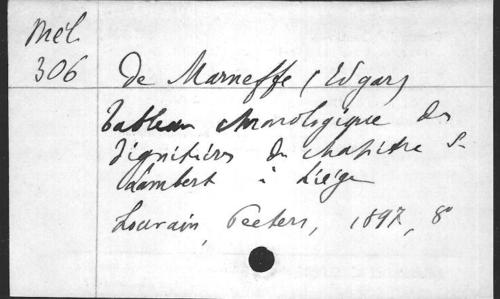 Mél.
306
de Marneffe (Edgar)
Tableau chronologique des
dignitaires du chapitre St
Lambert à Liège
Louvain, Peeters, 1897, 8°